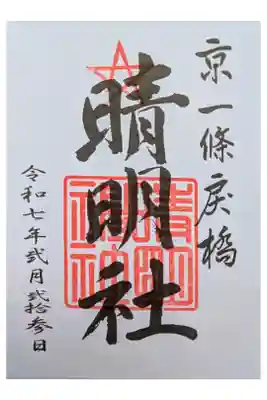 京一條戻橋
晴明社
晴明神社
令和七年弐月弐拾参日